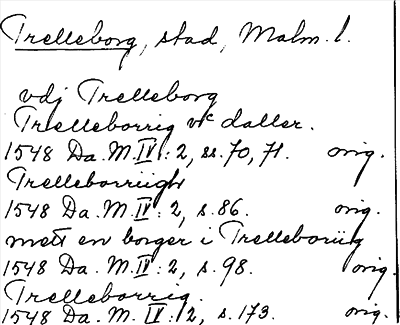 Trelleborg, stad, Malm. l.
vdj Trelleborg
Trelleborrig vc daller.
1548 Da. M. IV: 2, ss. 70, 71. orig.
Trelleborriigh
1548 Da. M IV: 2, s. 86. orig.
mett en borger i Trelleboriig
1548 Da. M. IV: 2, s. 98. orig.
Trelleborrig.
1548 Da. M. IV: 2, s. 173. orig.